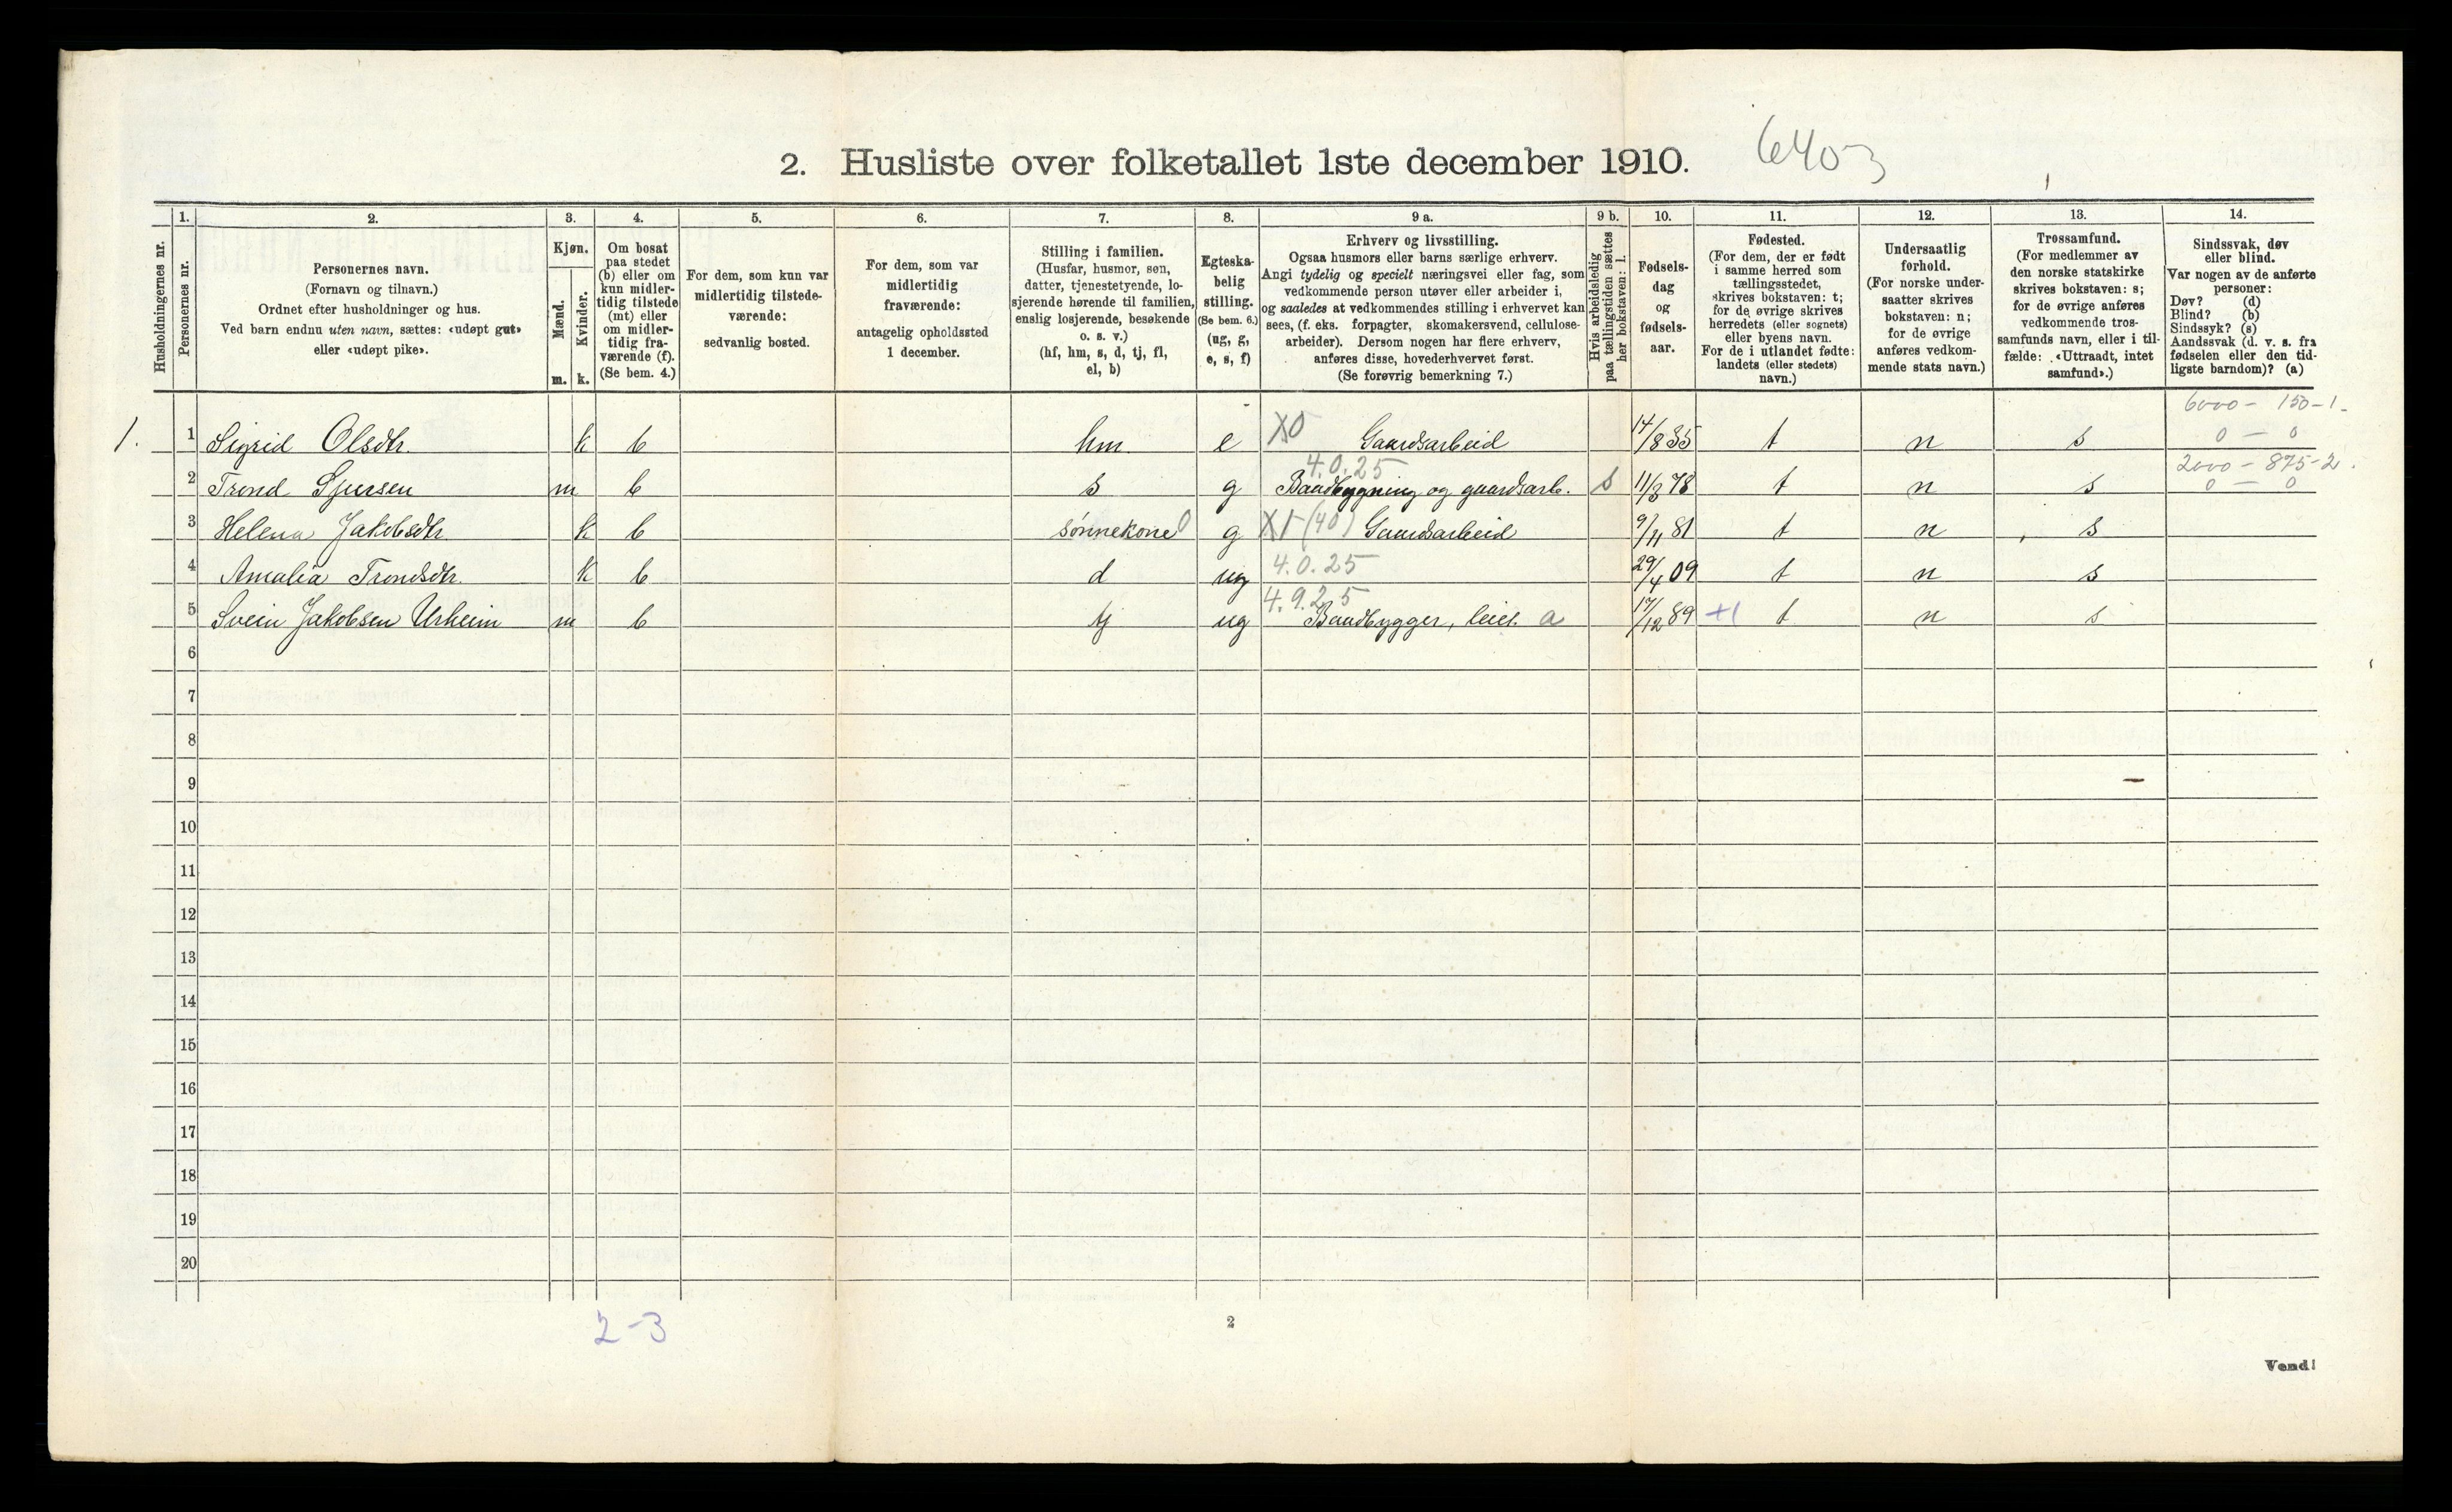 2. Husliste over folketallet 1ste december 1910. 6403
Husholdningernes nr.
1.
Personernes nr.
2.
Personernes navn.
(Fornavn og tilnavn.)
Ordnet efter husholdninger og hus.
Ved barn endnu uten navn, sættes: «udøpt gut»
eller «udøpt pike».
3.
Kjøn.
Mænd.
m.
Kvinder.
k.
4.
Om bosat
paa stedet
(b) eller om
kun midler-
tidig tilstede
(mt) eller
om midler-
tidig fra-
værende (f).
(Se bem. 4.)
5.
For dem, som kun var
midlertidig tilstede-
værende:
sedvanlig bosted.
6.
For dem, som var
midlertidig
fraværende:
antagelig opholdssted
1 december.
7.
Stilling i familien.
(Husfar, husmor, søn,
datter, tjenestetyende, lo-
sjerende hørende til familien,
enslig losjerende, besøkende
o. s. v.)
(hf, hm, s, d, tj, fl,
el, b)
8.
Egteska-
belig
stilling.
(Se bem. 6.)
(ug, g,
e, s, f)
9 a.
Erhverv og livsstilling.
Ogsaa husmors eller barns særlige erhverv.
Angi tydelig og specielt næringsvei eller fag, som
vedkommende person utøver eller arbeider i,
og saaledes at vedkommendes stilling i erhvervet kan
sees, (f. eks. forpagter, skomakersvend, cellulose-
arbeider). Dersom nogen har flere erhverv,
anføres disse, hovederhvervet først.
(Se forøvrig bemerkning 7.)
9 b.
Hvis arbeidsledig
paa tællingstiden sættes
her bokstaven: l.
10.
Fødsels-
dag
og
fødsels-
aar.
11.
Fødested.
(For dem, der er født
i samme herred som
tællingsstedet,
skrives bokstaven: t;
for de øvrige skrives
herredets (eller sognets)
eller byens navn.
For de i utlandet fødte:
landets (eller stedets)
navn.)
12.
Undersaatlig
forhold.
(For norske under-
saatter skrives
bokstaven: n;
for de øvrige
anføres vedkom-
mende stats navn.)
13.
Trossamfund.
(For medlemmer av
den norske statskirke
skrives bokstaven: s;
for de øvrige anføres
vedkommende tros-
samfunds navn, eller i til-
fælde: «Uttraadt, intet
samfund».)
14.
Sindssvak, døv
eller blind.
Var nogen av de anførte
personer:
Døv? (d)
Blind? (b)
Sindssyk? (s)
Aandssvak (d. v. s. fra
fødselen eller den tid-
ligste barndom)? (a)
6000 - 150-1-
1. 1 Sigrid Olsdtr. k b hm. e X0 Gaardsarbeid 14/8 35 t n s 0 - 0
4.0.25 2000 - 875-2.
2 Trond Sjursen m b s g Baadbygning og gaardsarb. s 11/3 78 t n s 0 - 0
3 Helena Jakobsdtr. k b sønnekone 0 g X1 (40) Gaardsarbeid 9/11 81 t n s
4 Amalia Trondsdtr. k b d ug 4.0.25 29/4 09 t n s
4.9.25
5 Svein Jakobsen Urheim m b tj ug Baadbygger, leiet. a 17/12 89 +1 t n s
6
7
8
9
10
11
12
13
14
15
16
17
18
19
20
2-3
2
Vend!